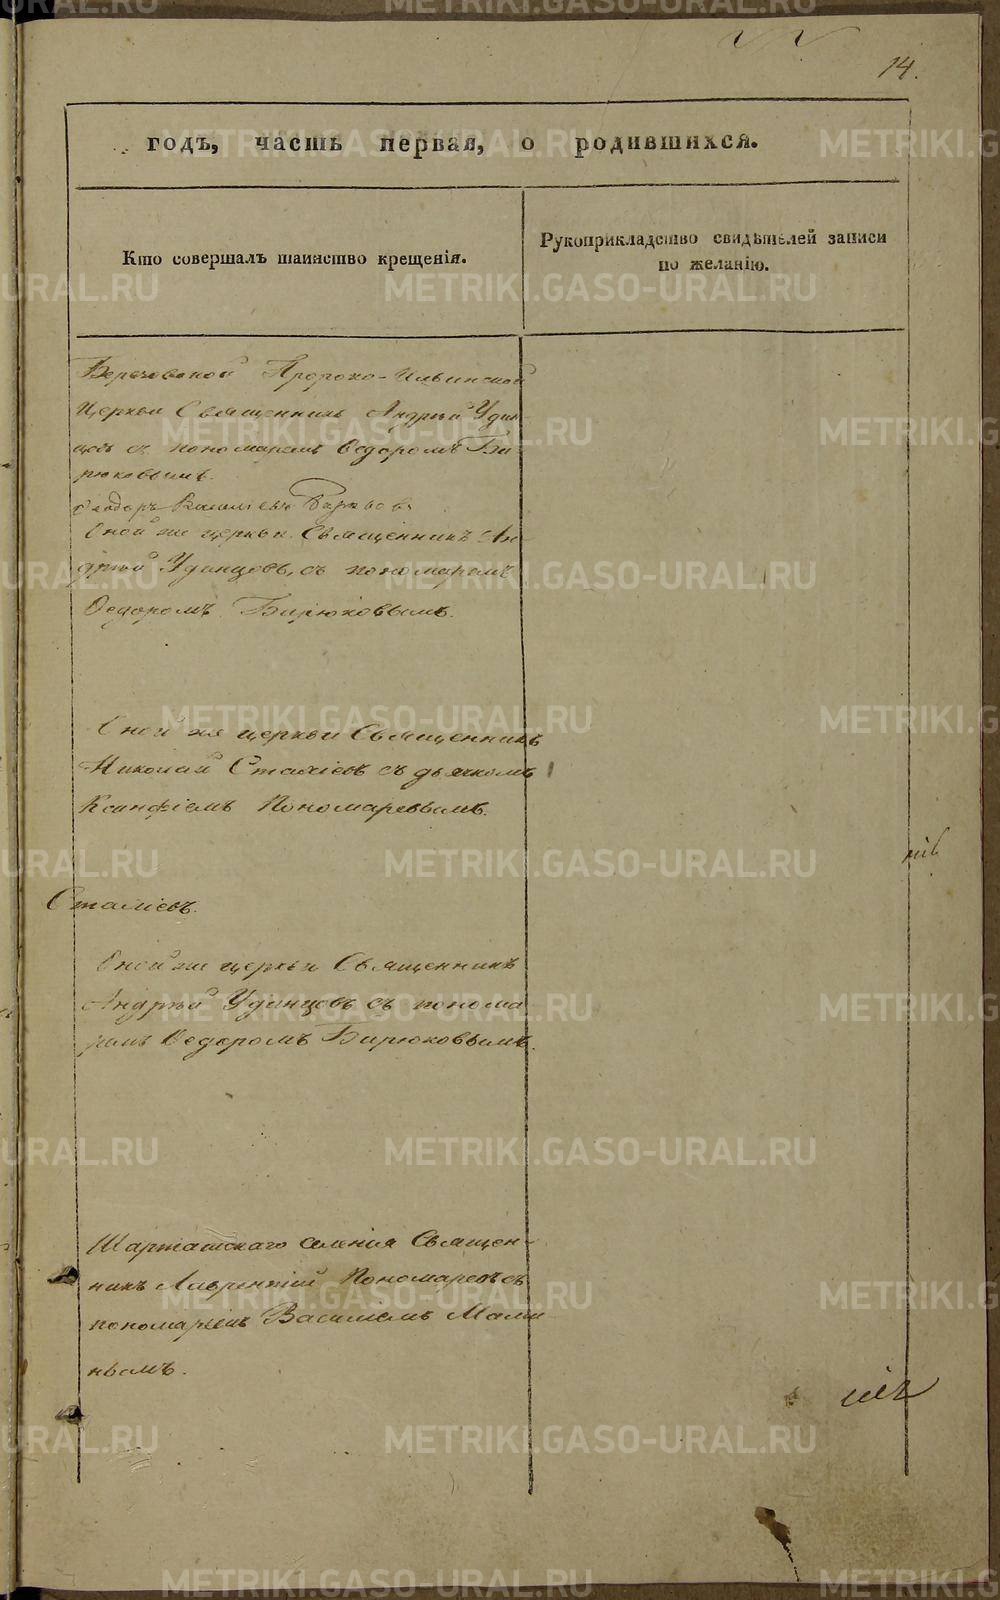 14.
годъ, часть первая, о родившихся.
Кто совершалъ таинство крещенія.
Рукоприкладство свидѣтелей записи
по желанію.
Березовской Пророко-Ильинской
Церкви Священникъ Андрей Удин-
цовъ съ пономаремъ Ѳедоромъ Би-
рюковымъ.
Оной же церкви Священникъ Ан-
дрей Удинцовъ, съ пономаремъ
Ѳедоромъ Бирюковымъ.
Оной же церкви Священникъ
Николай Стахіевъ съ дьячкомъ
Ксанфіемъ Пономаревымъ.
Оной же церкви Священникъ
Андрей Удинцовъ съ понома
ремъ Ѳедоромъ Бирюковымъ.
Шарташскаго селенія Священ-
никъ Лаврентій Пономаревъ съ
пономаремъ Василіемъ Мали
нымъ.
METRIKI.GASO-URAL.RU